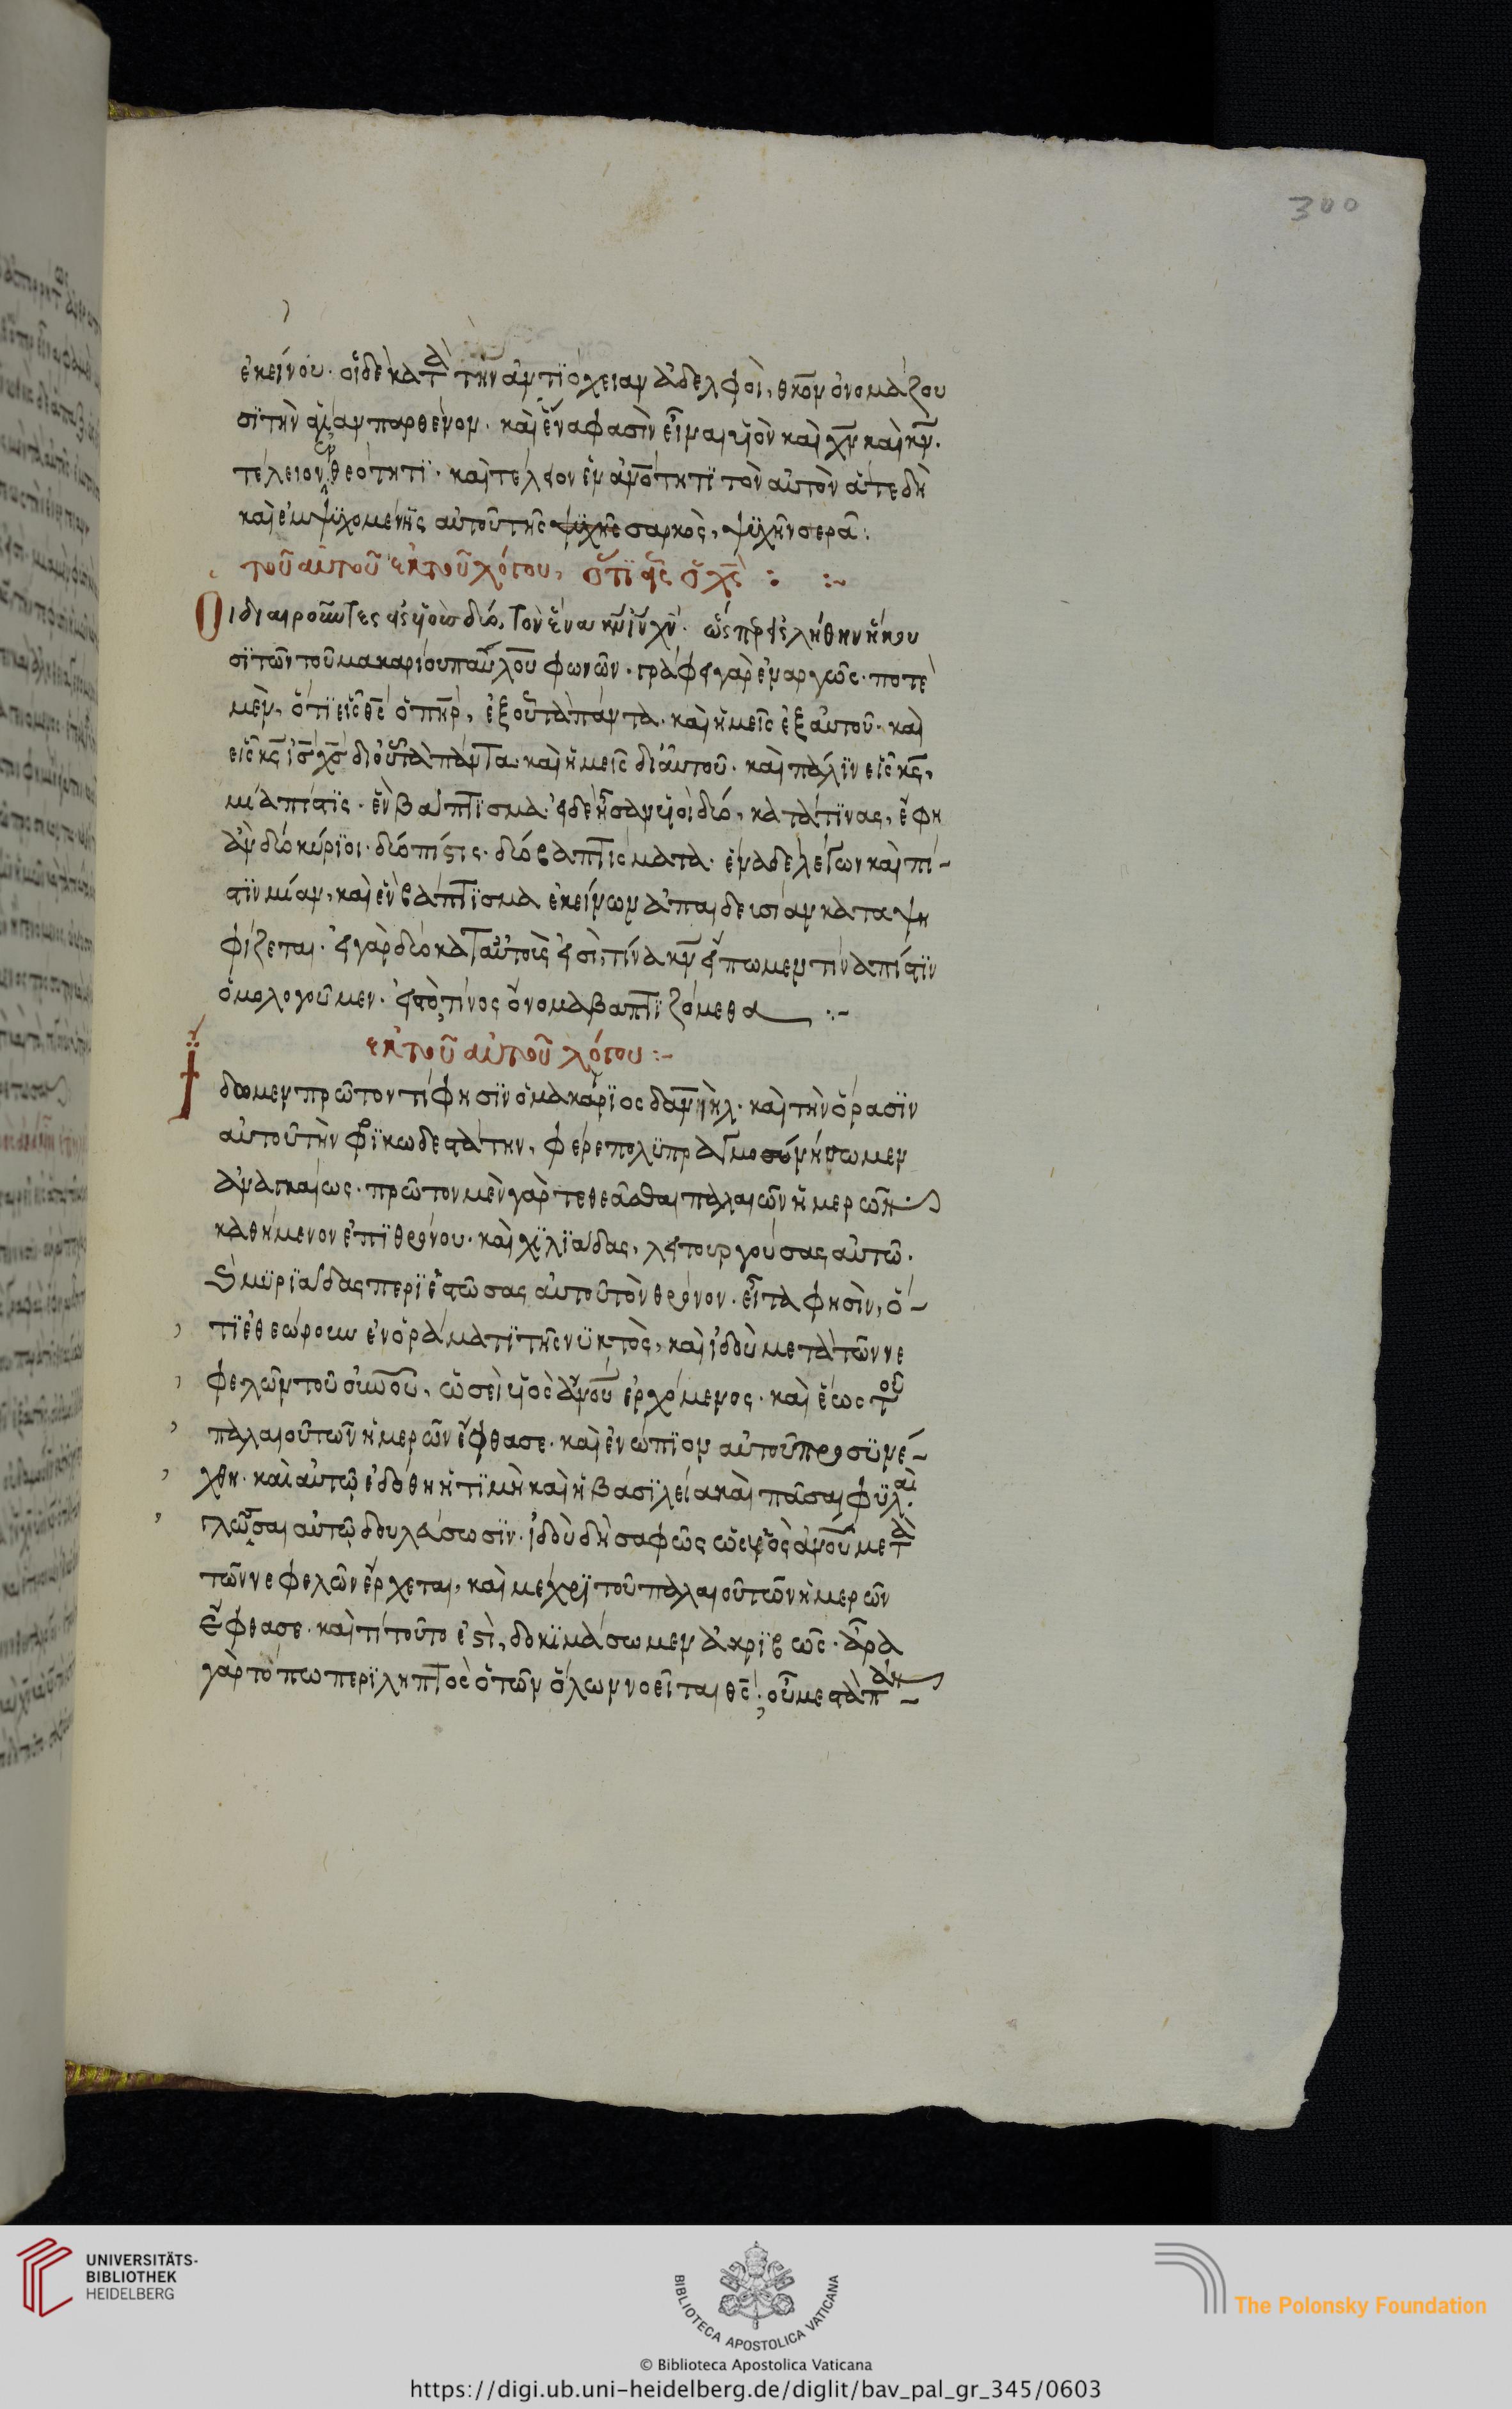 300
ἐκείνου· οἱ δὲ κατὰ τὴν ἀντιόχειαν ἀδελφοὶ, θκον ὀνομάζου
σϊ τὴν ἁγίαν παρθένον· καὶ ἕνα φασὶν εἶναι υἱὸν καὶ χν καὶ κν·
τέλειον ἐν θεότητϊ· καὶ τέλειον ἐν ἀνότητϊ τὸν αὐτὸν ἅτε δὴ
καὶ ἐμψϋχομένης αὐτοῦ τῆς ψϋχῆς σαρκὸς, ψϋχῆ νοερᾶ:
τοῦ αὐτοῦ ἐκ τοῦ λόγου, ὅτϊ εἷς ὁ χς : :~
Οἱ διαιροῦντες εἰς υἱοὺς δύο, τὸν ἕνα κν ιν χν·
σϊ τῶν τοῦ μακαρίου παύλου φωνῶν· γράφει γὰρ ἐναργῶς· ποτὲ
μὲν, ὅτϊ εἷς θς ὁ πηρ, ἐξ οὗ τὰ πάντα· καὶ ἡμεῖς ἐξ αὐτοῦ· καὶ
εἷς κς ις χς δι' οὗ τὰ πάντα· καὶ ἡμεῖς δι' αὐτοῦ· καὶ πάλϊν εἷς κς,
μία πίστϊς· ἓν βάπτϊσμα· εἰ δὲ ἦσαν υἱοὶ δύο, κατά τϊνας, ἔφη
ἂν δύο κύρϊοι· δύο πίστις· δύο βαπτίσματα· ἕνα δὲ λέγων καὶ πί-
στϊν μίαν, καὶ ἓν βάπτϊσμα ἐκείνων ἀπαιδευσίαν καταψη
φίζεται· εἰ γὰρ δύο κατ' αὐτοὺς εἰσὶ, τίνα κν εἴπωμεν τίνα πίστϊν
ὁμολογοῦμεν· εἰς τὸ τίνος ὄνομα βαπτϊζόμεθα :~
ἐκ τοῦ αὐτοῦ λόγου :~
Ϊδωμεν πρῶτον τί φησϊν ὁ μακάρϊος δανϊὴλ· καὶ τὴν ὅρασϊν
αὐτοῦ τὴν φρϊκωδεστάτην, φέρε πολϋπραγμοσύνήσωμεν
ἀναγκαίως· πρῶτον μὲν γὰρ τεθεᾶσθαι παλαιῶν ἡμερῶν
καθήμενον ἐπϊ θρόνου· καὶ χϊλϊάδας, λειτουργούσας αὐτῶ·
καὶ μϋρϊάδας περϊεστώσας αὐτοῦ τὸν θρόνον· εἶτα φησὶν, ὅ-
τϊ ἐθεώρουν ἐν ὁράματϊ τῆς νϋκτὸς, καὶ ἰδοὺ μετὰ τῶν νε
φελῶν τοῦ οὐνοῦ, ὡσεὶ υἱὸς ἀνου ἐρχόμενος· καὶ ἕως τοῦ
παλαιοῦ τῶν ἡμερῶν ἔφθασε· καὶ ἐνώπϊον αὐτοῦ προσϋνέ-
χθη· καὶ αὐτῷ ἐδόθη ἡ τϊμὴ καὶ ἡ βασϊλεία καὶ πᾶσαι φϋλαὶ
γλῶσσαι αὐτῷ δουλεύσωσϊν· ἰδοὺ δὴ σαφῶς ὡς υἱὸς ἀνου μετὰ
τῶν νεφελῶν ἔρχεται, καὶ μέχρϊ τοῦ παλαιοῦ τῶν ἡμερῶν
ἔφθασε· καὶ τί τοῦτο ἐστὶ, δοκϊμάσωμεν ἀκρϊβῶς· ἆρα
γὰρ τόπω περϊληπτὸς ὁ τῶν ὅλων νοεῖται θς; οὗ μεστὰ πάν-
UNIVERSITÄTS-
BIBLIOTHEK
HEIDELBERG
BIBLIOTECA APOSTOLICA VATICANA
The Polonsky Foundation
© Biblioteca Apostolica Vaticana
https://digi.ub.uni-heidelberg.de/diglit/bav_pal_gr_345/0603